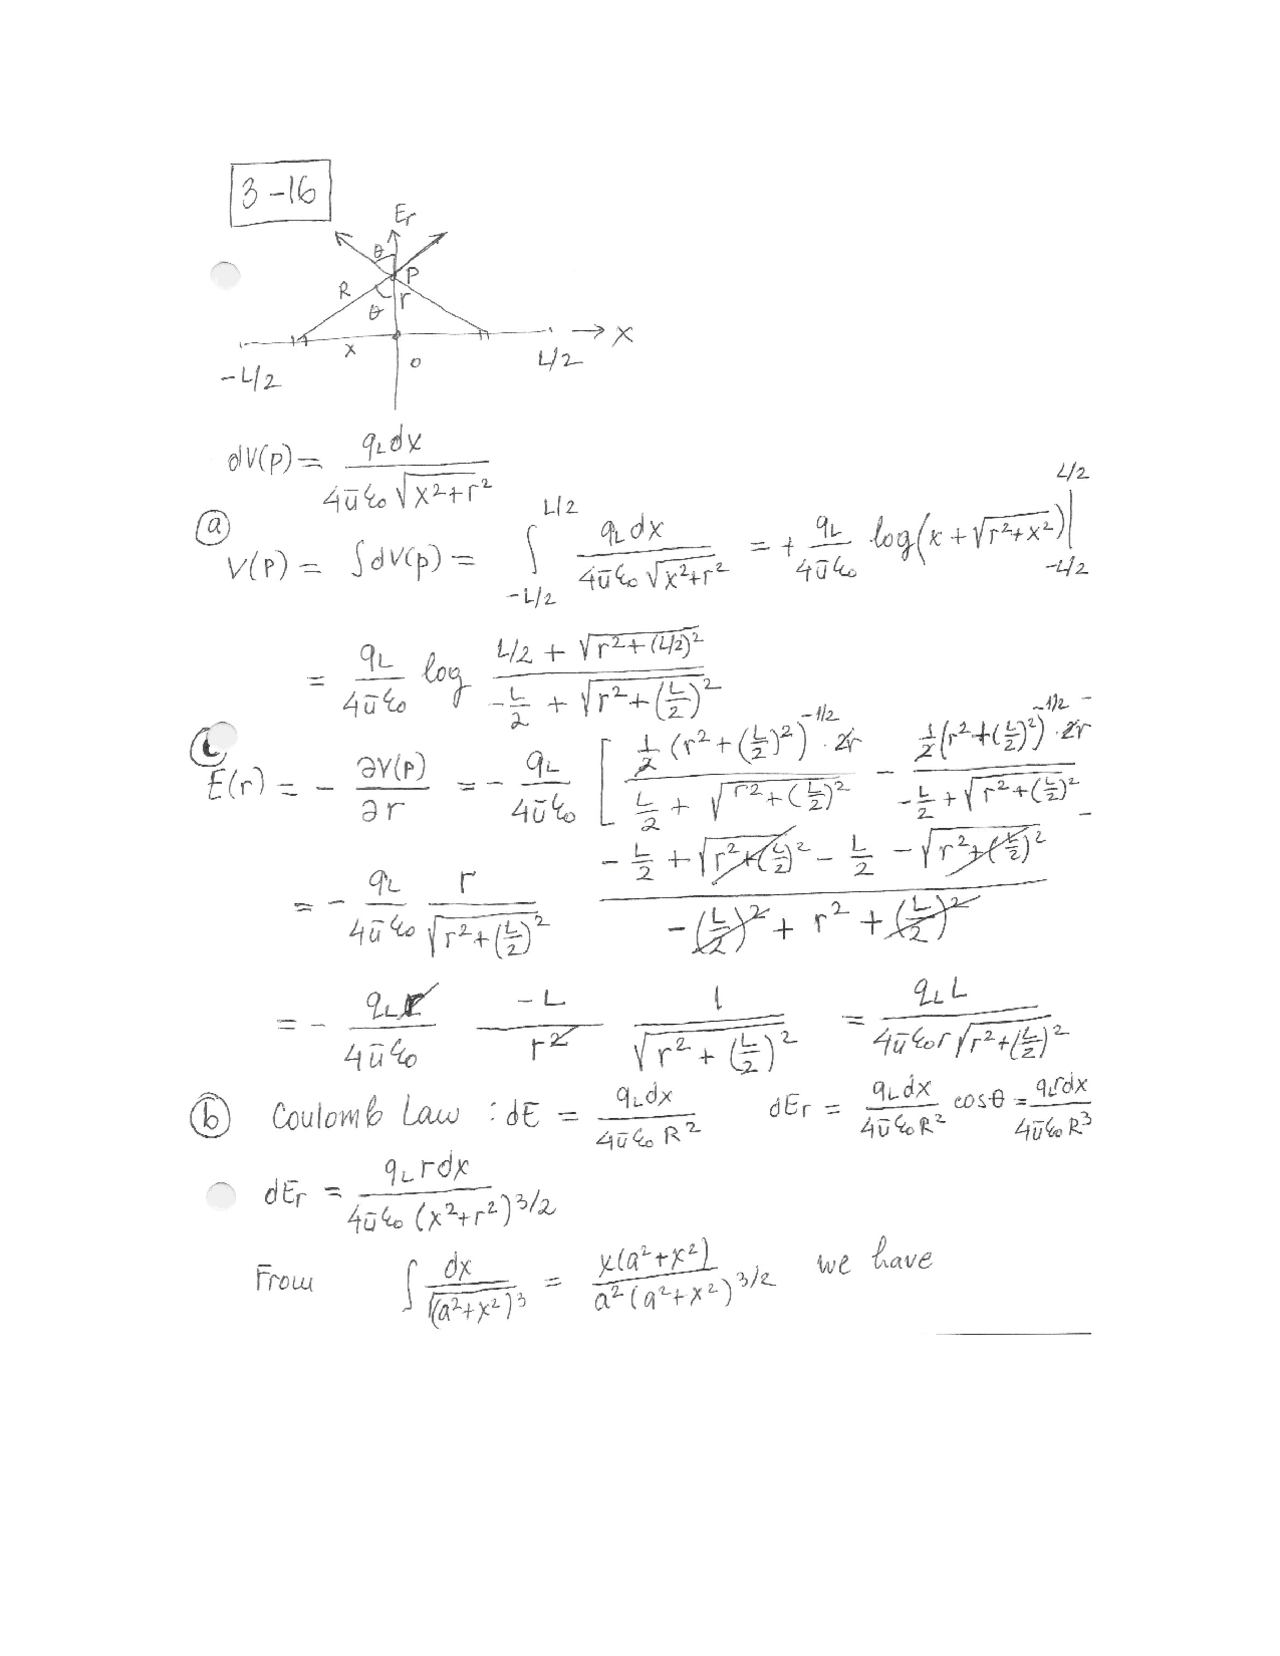 3-16
Er
θ
R P
θ r
x → x
-L/2 0 L/2
dV(p) = qL dx / 4πε₀ √(x²+r²)
(a) V(P) = ∫dV(p) = ∫_{-L/2}^{L/2} qL dx / 4πε₀ √(x²+r²) = + qL / 4πε₀ log(x + √(r²+x²)) |_{-L/2}^{L/2}
= qL / 4πε₀ log (L/2 + √(r²+(L/2)²)) / (-L/2 + √(r²+(L/2)²))
(c) E(r) = - ∂V(P) / ∂r = - qL / 4πε₀ [ 1/2 (r²+(L/2)²)^{-1/2} · 2r / (L/2 + √(r²+(L/2)²)) - 1/2 (r²+(L/2)²)^{-1/2} · 2r / (-L/2 + √(r²+(L/2)²))
= - qL / 4πε₀ r / √(r²+(L/2)²) (-L/2 + √(r²+(L/2)²) - L/2 - √(r²+(L/2)²)) / (-(L/2)² + r² + (L/2)²)
= - qL r / 4πε₀ -L / r² 1 / √(r²+(L/2)²) = qL L / 4πε₀ r √(r²+(L/2)²)
(b) Coulomb Law : dE = qL dx / 4πε₀ R² dEr = qL dx / 4πε₀ R² cosθ = qL r dx / 4πε₀ R³
dEr = qL r dx / 4πε₀ (x²+r²)^{3/2}
From ∫ dx / √(a²+x²)³ = x(a²+x²) / a²(a²+x²)^{3/2} we have